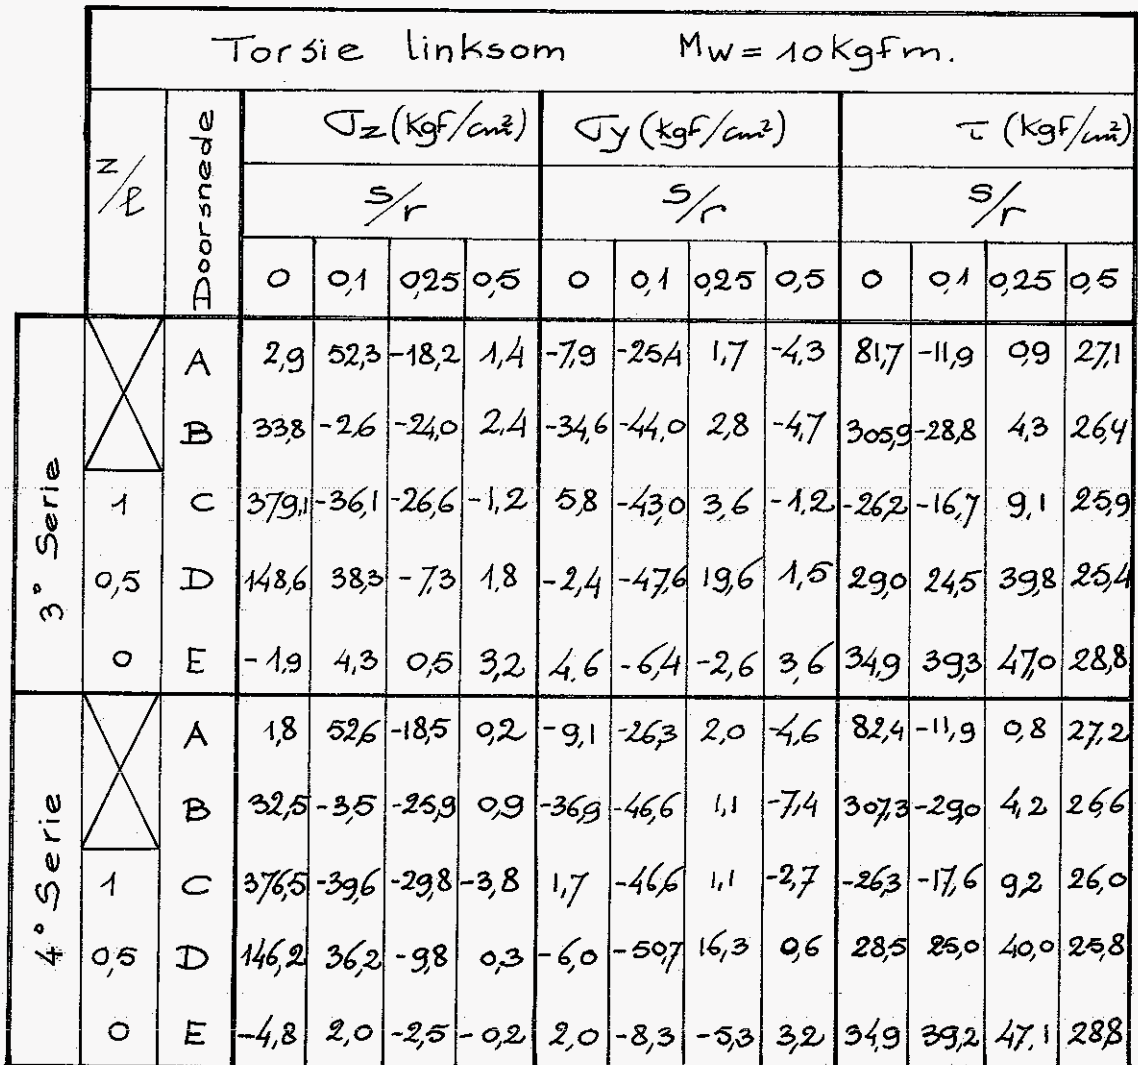 Torsie linksom Mw = 10 kgfm.
z/l Doorsnede σz (kgf/cm²) σy (kgf/cm²) τ (kgf/cm²)
s/r s/r s/r
0 0,1 0,25 0,5 0 0,1 0,25 0,5 0 0,1 0,25 0,5
3° Serie
A 2,9 52,3 -18,2 1,4 -7,9 -25,4 1,7 -4,3 81,7 -11,9 0,9 27,1
B 33,8 -2,6 -24,0 2,4 -34,6 -44,0 2,8 -4,7 305,9 -28,8 4,3 26,4
1 C 379,1 -36,1 -26,6 -1,2 5,8 -43,0 3,6 -1,2 -26,2 -16,7 9,1 25,9
0,5 D 148,6 38,3 -7,3 1,8 -2,4 -47,6 19,6 1,5 29,0 24,5 39,8 25,4
0 E -1,9 4,3 0,5 3,2 4,6 -6,4 -2,6 3,6 34,9 39,3 47,0 28,8
4° Serie
A 1,8 52,6 -18,5 0,2 -9,1 -26,3 2,0 -4,6 82,4 -11,9 0,8 27,2
B 32,5 -3,5 -25,9 0,9 -36,9 -46,6 1,1 -7,4 307,3 -29,0 4,2 26,6
1 C 376,5 -39,6 -29,8 -3,8 1,7 -46,6 1,1 -2,7 -26,3 -17,6 9,2 26,0
0,5 D 146,2 36,2 -9,8 0,3 -6,0 -50,7 16,3 0,6 28,5 25,0 40,0 25,8
0 E -4,8 2,0 -2,5 -0,2 2,0 -8,3 -5,3 3,2 34,9 39,2 47,1 28,8